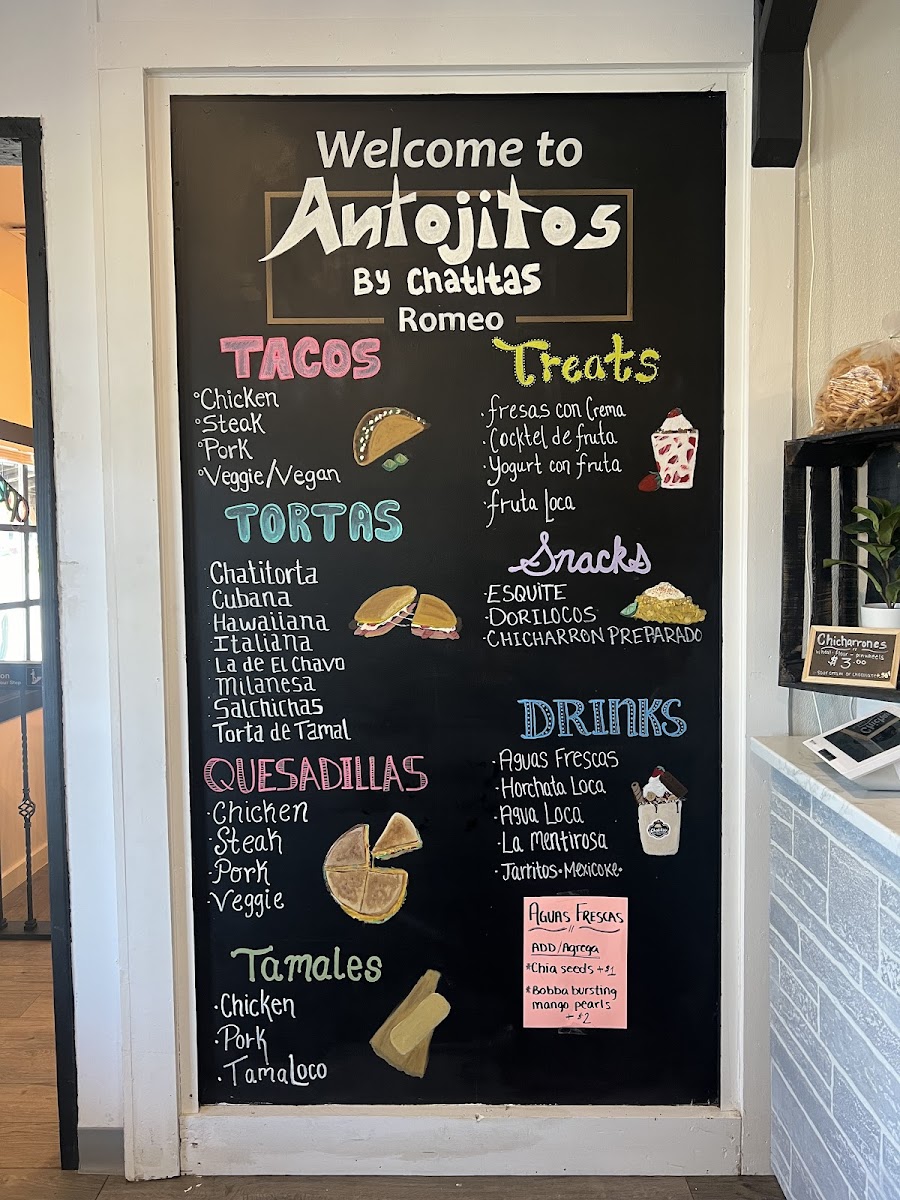 Welcome to
Antojitos
By Chatitas
Romeo
TACOS
Chicken
Steak
Pork
Veggie/Vegan
TORTAS
Chatitorta
Cubana
Hawaiiana
Italiana
La de El Chavo
Milanesa
Salchichas
Torta de Tamal
QUESADILLAS
Chicken
Steak
Pork
Veggie
Tamales
Chicken
Pork
TamaLoco
Treats
fresas con Crema
Cocktel de fruta
Yogurt con fruta
fruta Loca
Snacks
ESQUITE
DORILOCOS
CHICHARRON PREPARADO
DRINKS
Aguas Frescas
Horchata Loca
Agua Loca
La Mentirosa
Jarritos • Mexicoke •
AGUAS FRESCAS
ADD/Agrega
*Chia seeds + $1
*Bobba bursting
mango pearls
+ $2
Chicharrones
wheel - flour - pinwheels
$3.00